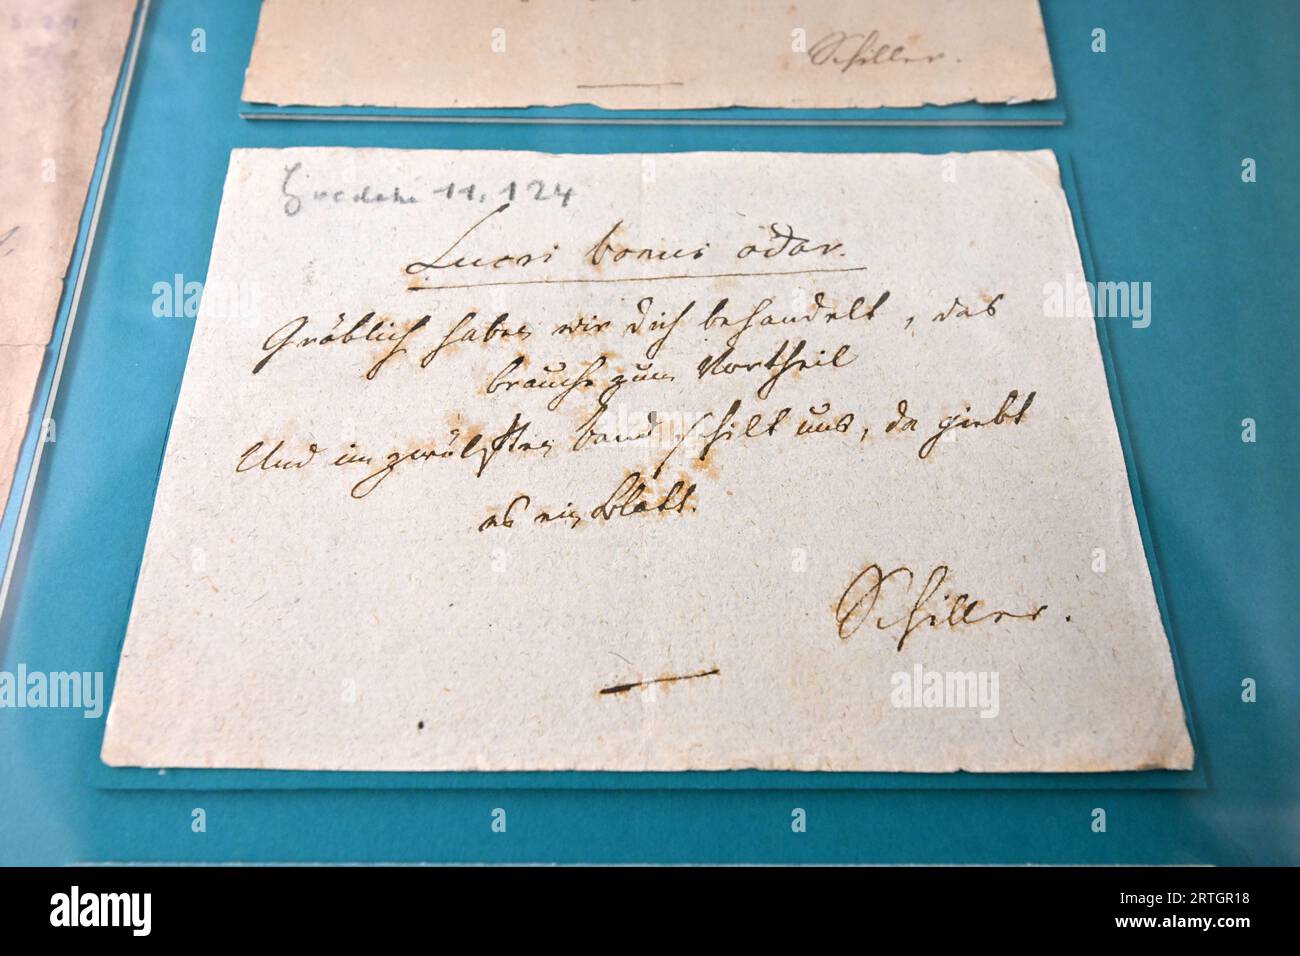 Schiller.
11, 124
Lucri bonus odor.
Gröblich haben wir dich behandelt, das
brauche zum Vortheil
Und im zwölften Band schilt uns, da giebt
es ein Blatt.
Schiller.
alamy
Image ID: 2RTGR18
www.alamy.com